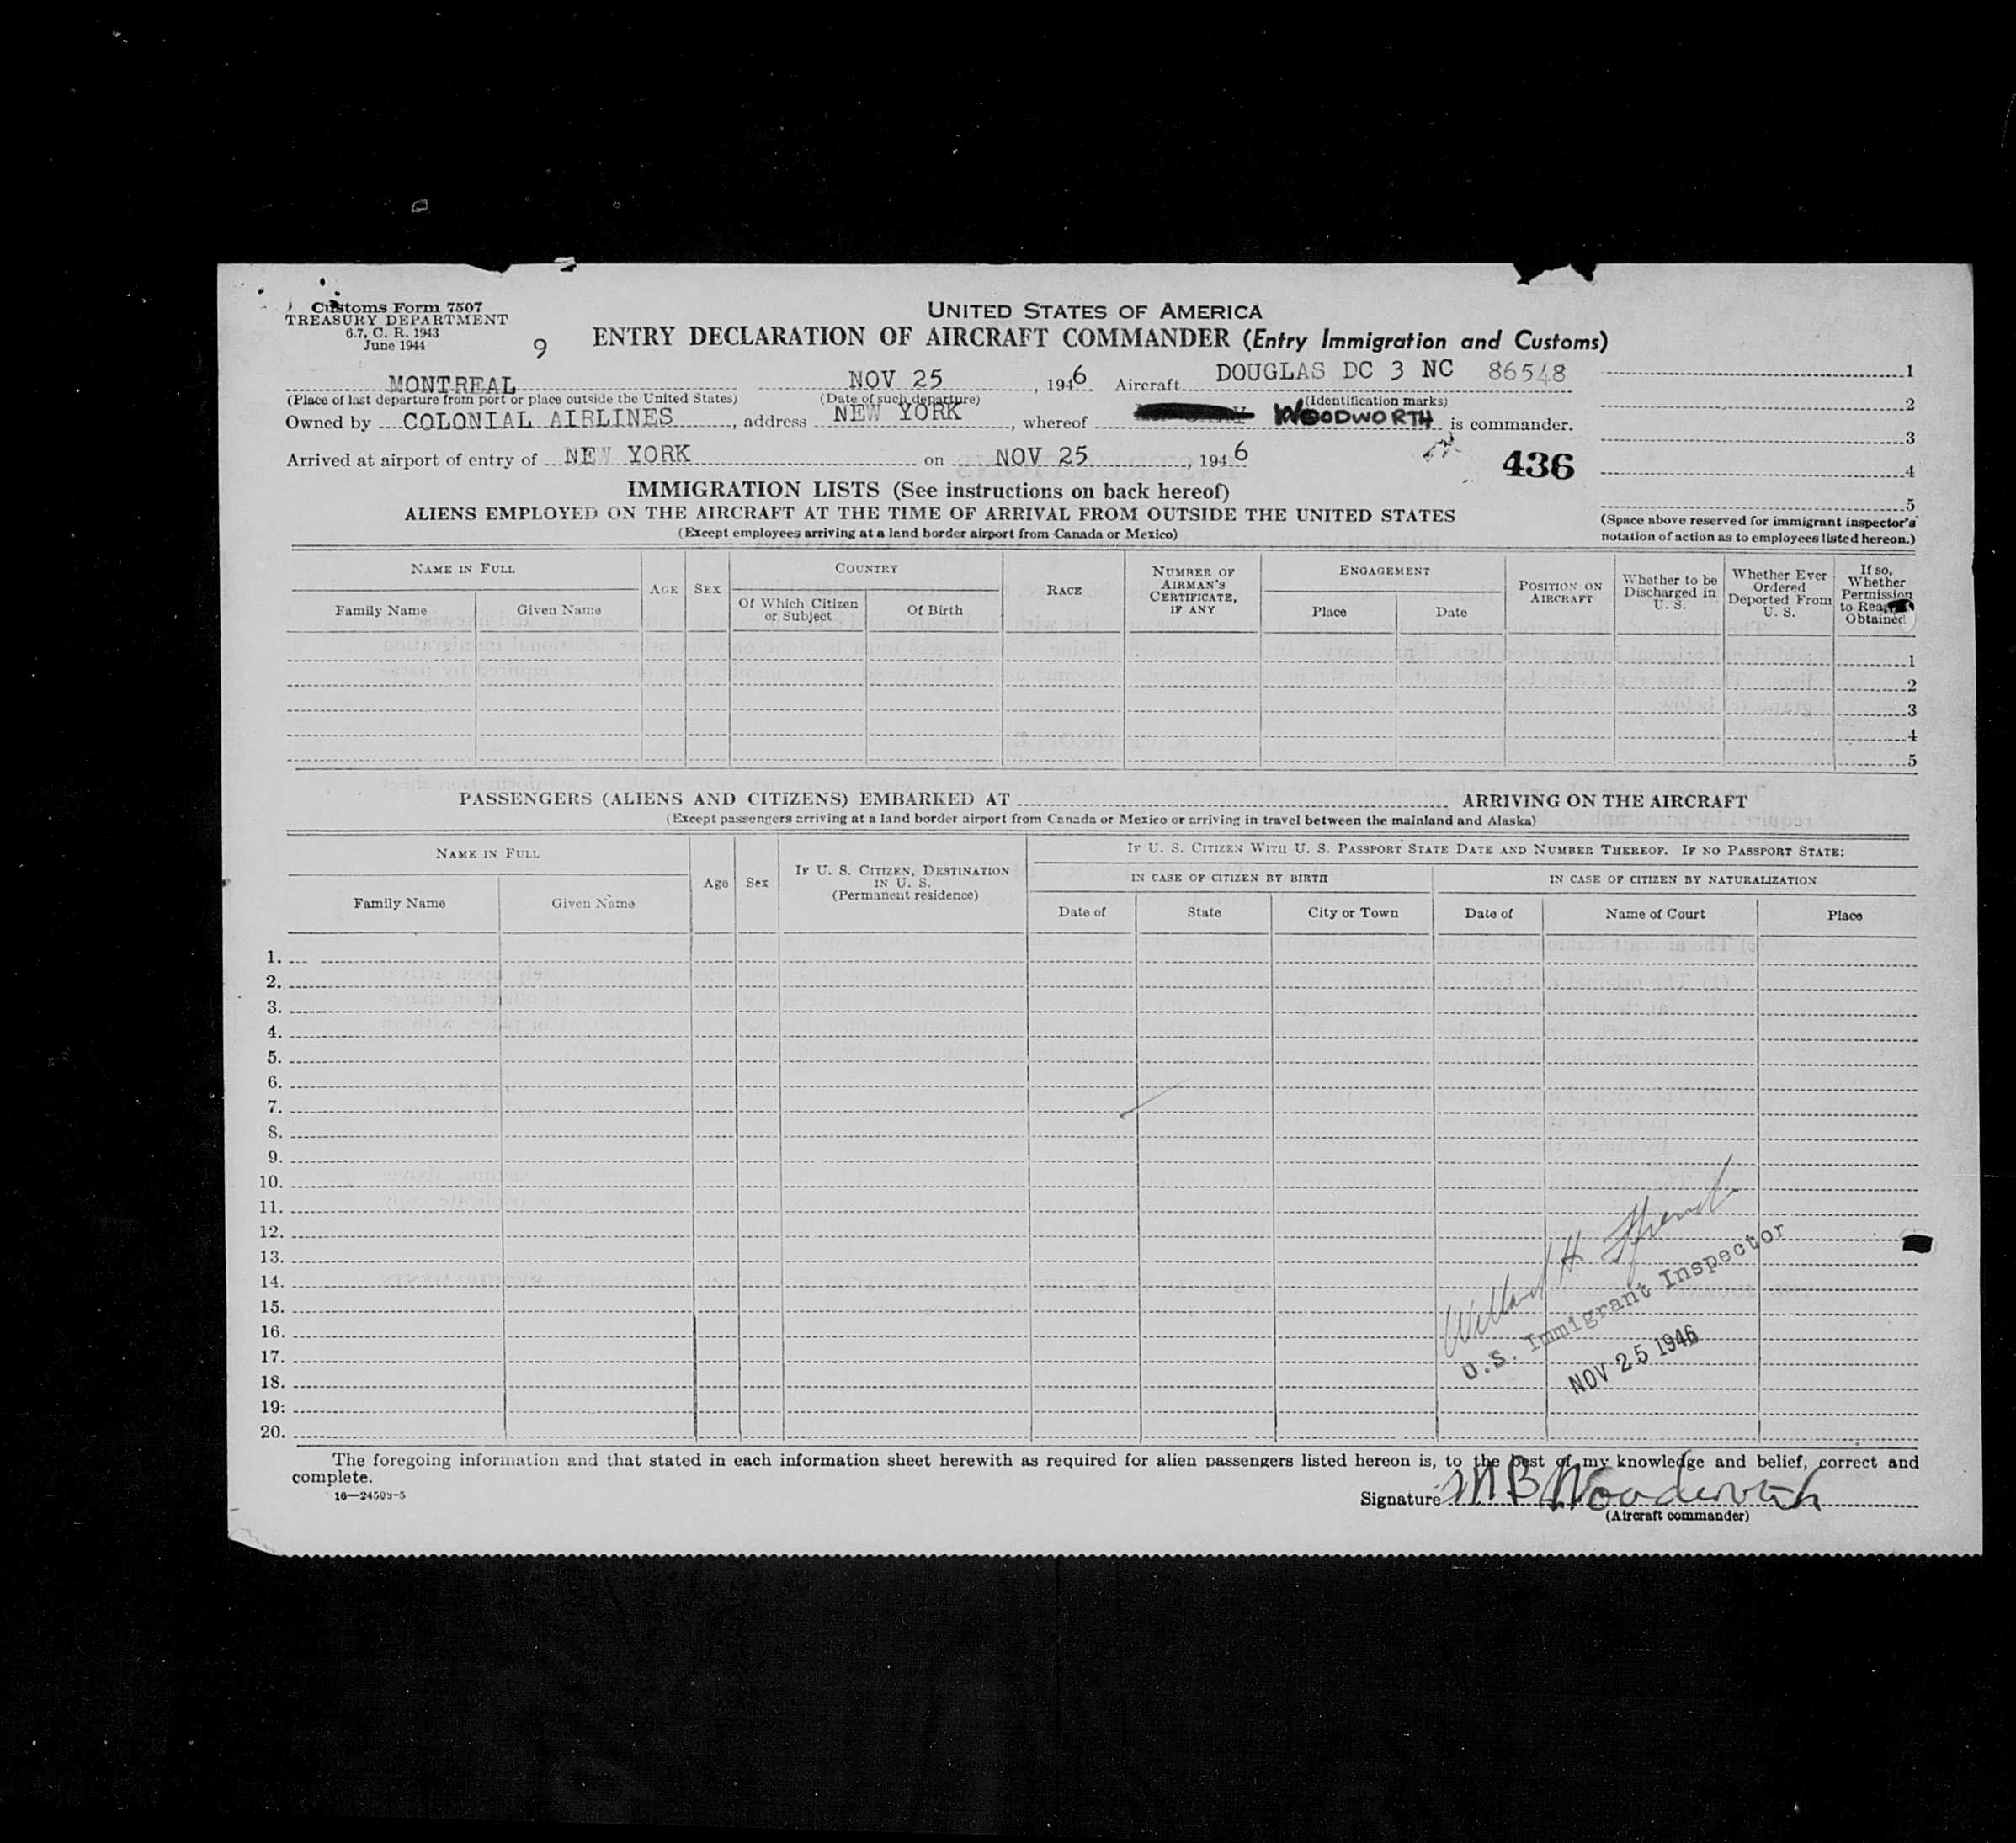 Customs Form 7507
TREASURY DEPARTMENT
6.7, C. R. 1943
June 1944
9
UNITED STATES OF AMERICA
ENTRY DECLARATION OF AIRCRAFT COMMANDER (Entry Immigration and Customs)
MONTREAL NOV 25, 1946 Aircraft DOUGLAS DC 3 NC 86548
(Place of last departure from port or place outside the United States) (Date of such departure) (Identification marks)
Owned by COLONIAL AIRLINES, address NEW YORK, whereof WOODWORTH is commander.
Arrived at airport of entry of NEW YORK on NOV 25, 1946
436
1
2
3
4
5
(Space above reserved for immigrant inspector's
notation of action as to employees listed hereon.)
IMMIGRATION LISTS (See instructions on back hereof)
ALIENS EMPLOYED ON THE AIRCRAFT AT THE TIME OF ARRIVAL FROM OUTSIDE THE UNITED STATES
(Except employees arriving at a land border airport from Canada or Mexico)
NAME IN FULL
Family Name
Given Name
AGE
SEX
COUNTRY
Of Which Citizen
or Subject
Of Birth
RACE
NUMBER OF
AIRMAN'S
CERTIFICATE,
IF ANY
ENGAGEMENT
Place
Date
POSITION ON
AIRCRAFT
Whether to be
Discharged in
U. S.
Whether Ever
Ordered
Deported From
U. S.
If so,
Whether
Permission
to
Obtained
1
2
3
4
5
PASSENGERS (ALIENS AND CITIZENS) EMBARKED AT ARRIVING ON THE AIRCRAFT
(Except passengers arriving at a land border airport from Canada or Mexico or arriving in travel between the mainland and Alaska)
NAME IN FULL
Family Name
Given Name
Age
Sex
IF U. S. CITIZEN, DESTINATION
IN U. S.
(Permanent residence)
IF U. S. CITIZEN WITH U. S. PASSPORT STATE DATE AND NUMBER THEREOF. IF NO PASSPORT STATE:
IN CASE OF CITIZEN BY BIRTH
IN CASE OF CITIZEN BY NATURALIZATION
Date of
State
City or Town
Date of
Name of Court
Place
1.
2.
3.
4.
5.
6.
7.
8.
9.
10.
11.
12.
13.
14.
15.
16.
17.
18.
19.
20.
Willard H
U.S. Immigrant Inspector
NOV 25 1946
The foregoing information and that stated in each information sheet herewith as required for alien passengers listed hereon is, to the best of my knowledge and belief, correct and
complete.
16—24508-5
Signature M B Woodworth
(Aircraft commander)